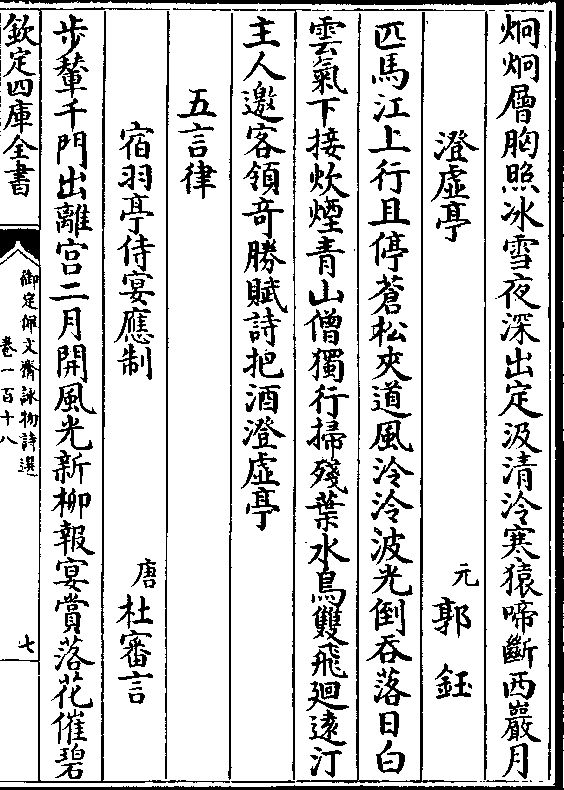 炯炯層胸照冰雪夜深出定汲清泠寒猿啼斷西巖月
澄虛亭
元郭鈺
匹馬江上行且停蒼松夾道風泠泠波光倒吞落日白
雲氣下接炊煙青山僧獨行掃殘葉水鳥雙飛迴遠汀
主人邀客領奇勝賦詩把酒澄虛亭
五言律
宿羽亭侍宴應制
唐杜審言
步輦千門出離宮二月開風光新柳報宴賞落花催碧
欽定四庫全書
御定佩文齋詠物詩選
卷一百十八
七